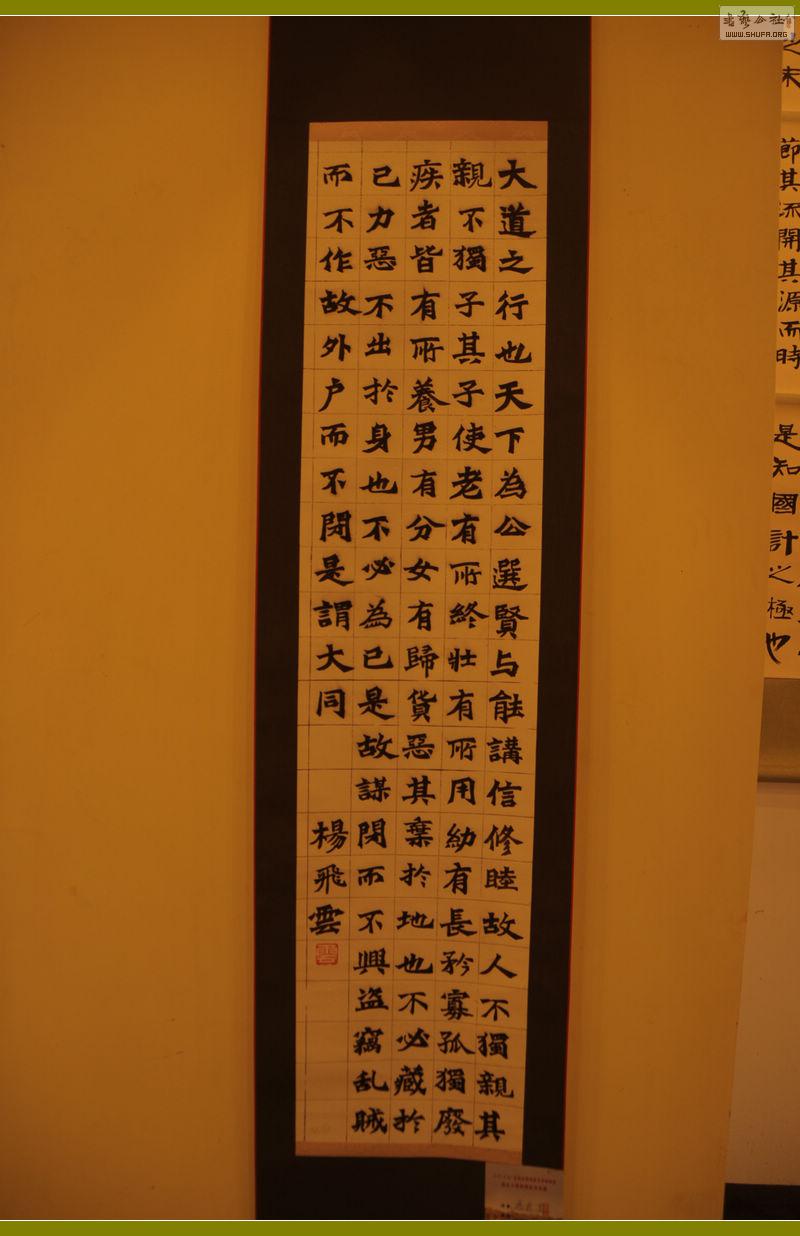 書藝公社
WWW.SHUFA.ORG
之末
節其流開其源而時
是知國計之極也
大道之行也天下為公選賢与能講信修睦故人不獨親其
親不獨子其子使老有所終壯有所用幼有長矜寡孤獨廢
疾者皆有所養男有分女有歸貨惡其棄於地也不必藏於
己力惡不出於身也不必為已是故謀閉而不興盜竊乱賊
而不作故外户而不閉是謂大同
楊飛雲